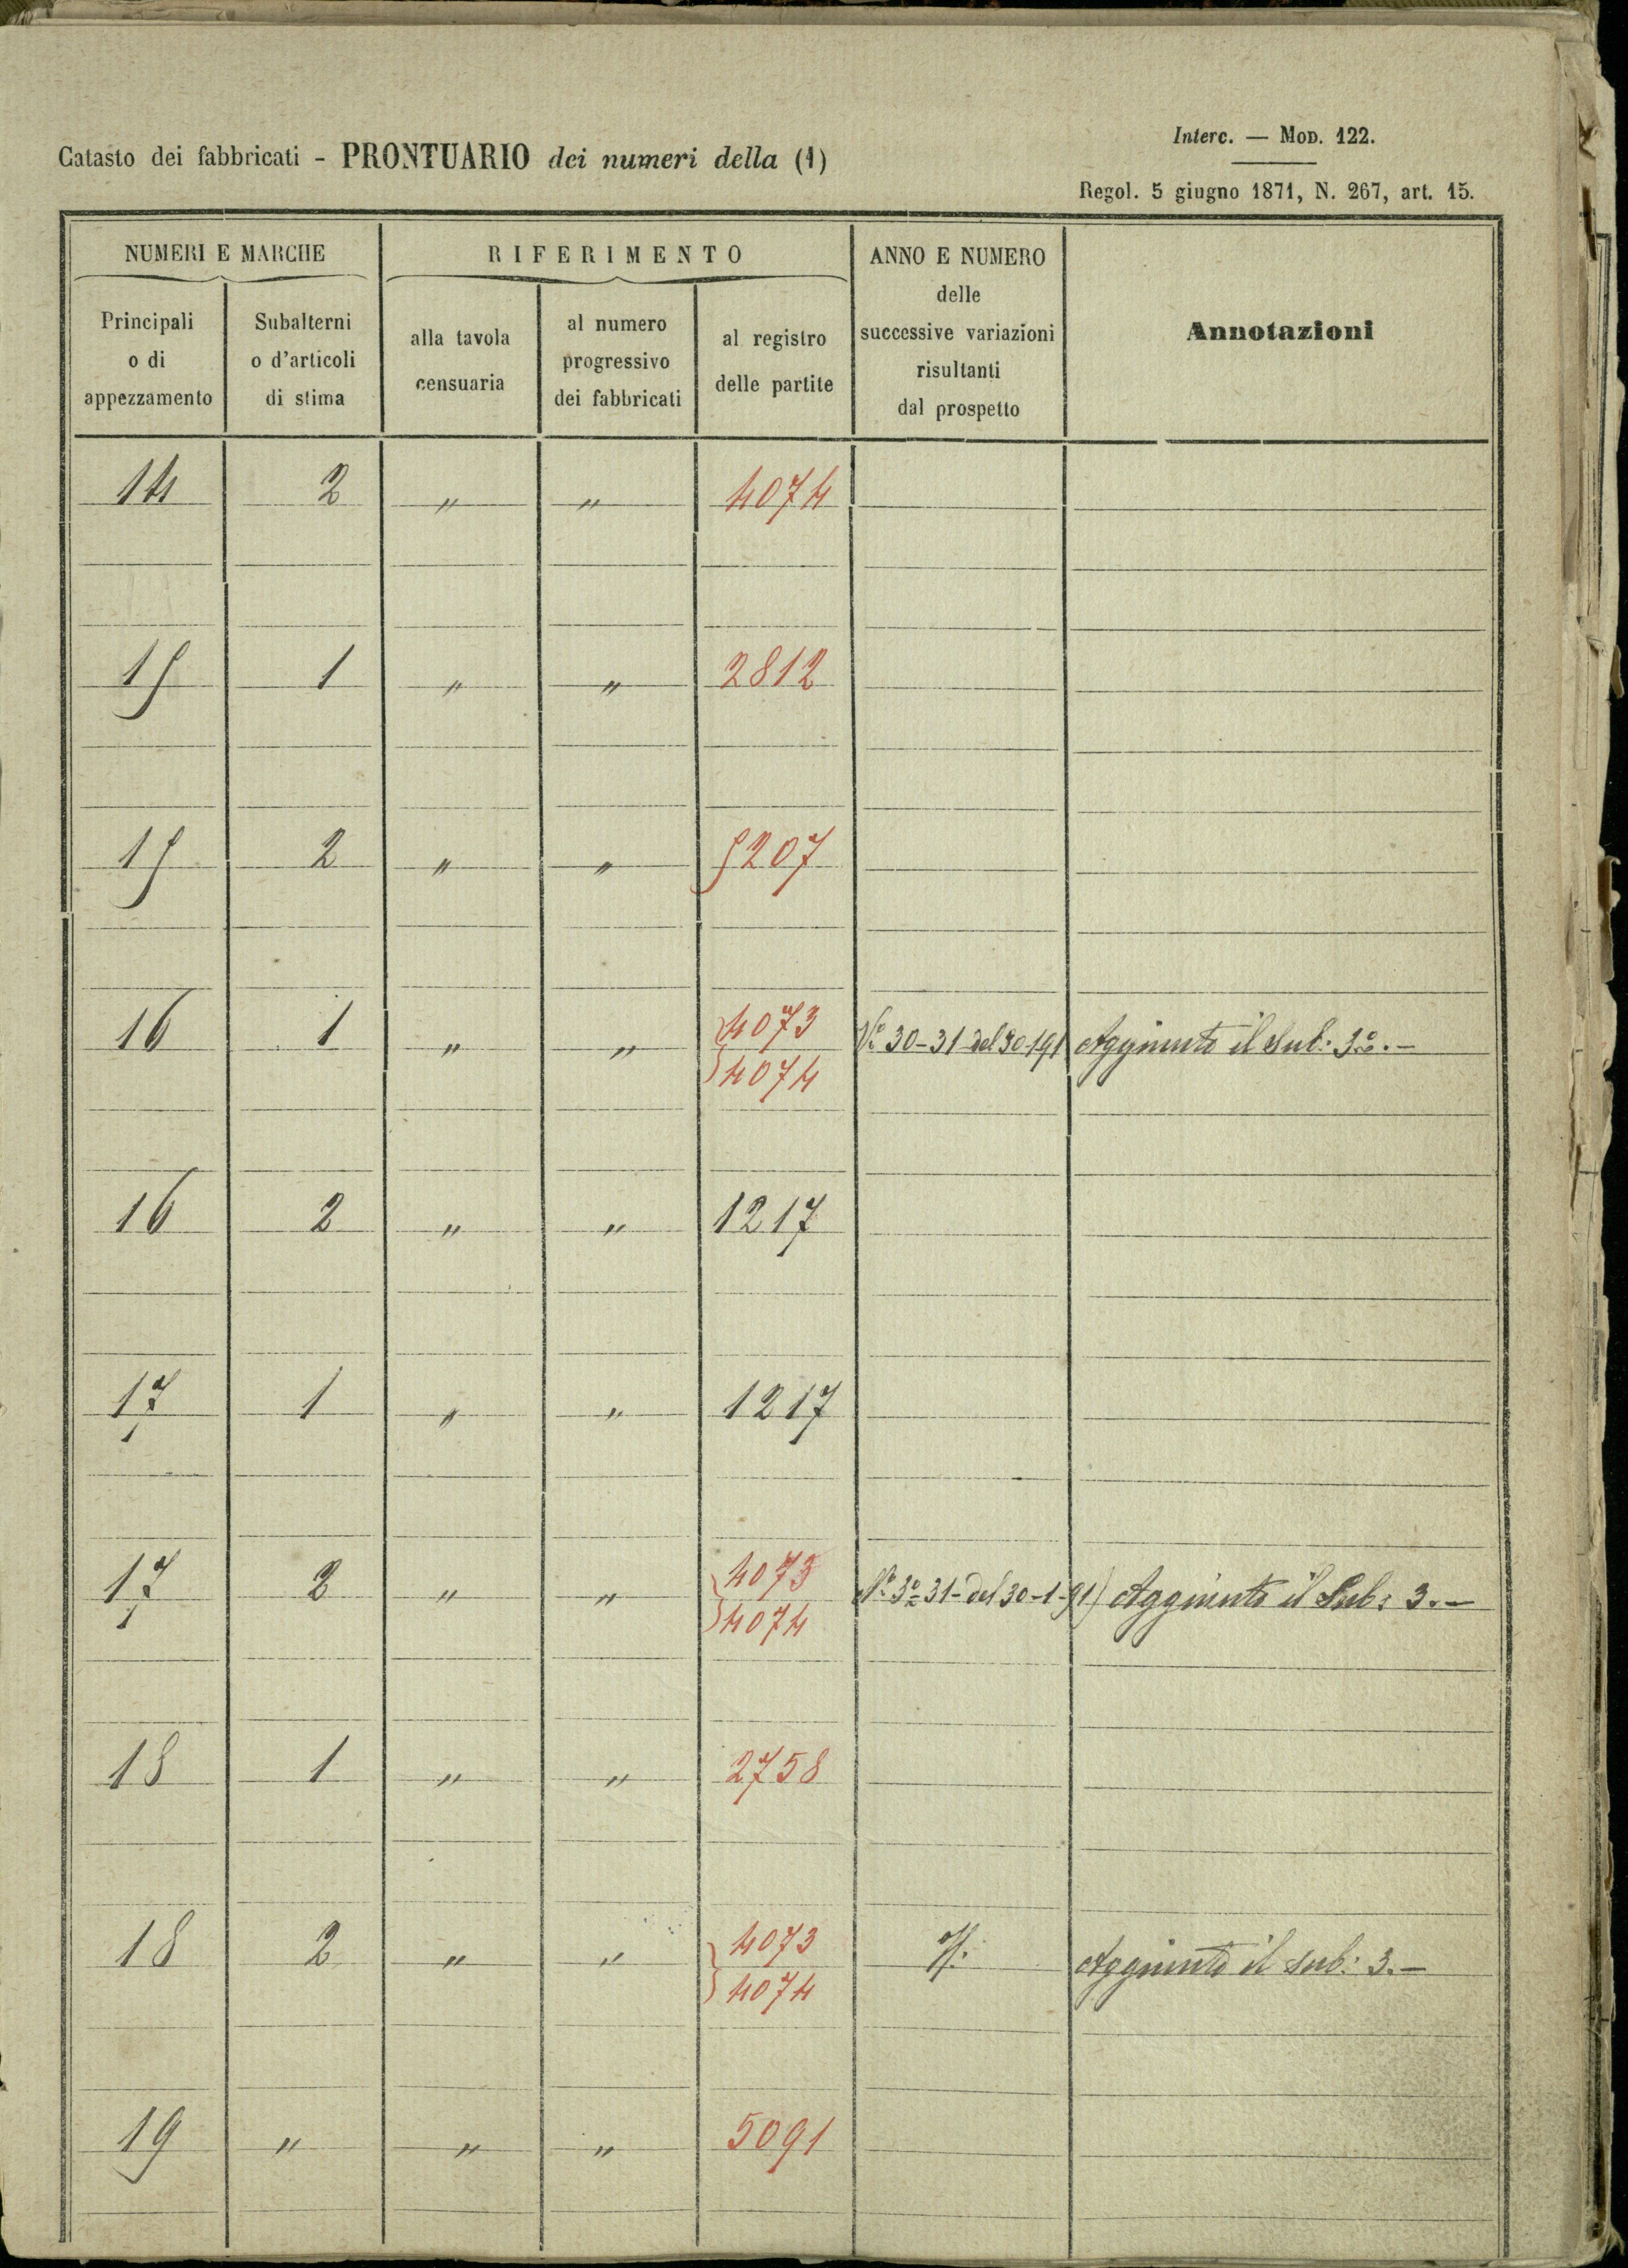 Catasto dei fabbricati - PRONTUARIO dei numeri della (1)
Interc. — MOD. 122.
Regol. 5 giugno 1871, N. 267, art. 15.
NUMERI E MARCHE
RIFERIMENTO
ANNO E NUMERO
delle
successive variazioni
risultanti
dal prospetto
Annotazioni
Principali
o di
appezzamento
Subalterni
o d'articoli
di stima
alla tavola
censuaria
al numero
progressivo
dei fabbricati
al registro
delle partite
14 2 " " 4074
15 1 " " 2812
15 2 " " 5207
16 1 " " 4073 N.° 30-31 del 30-1-91 Aggiunto il sub: 3°.-
4074
16 2 " " 1217
17 1 " " 1217
17 2 " " 4073 N.° 30-31- del 30-1-91) Aggiunto il Sub: 3.-
4074
18 1 " " 2758
18 2 " " 4073 Aggiunto il sub: 3.-
4074
19 " " " 5091